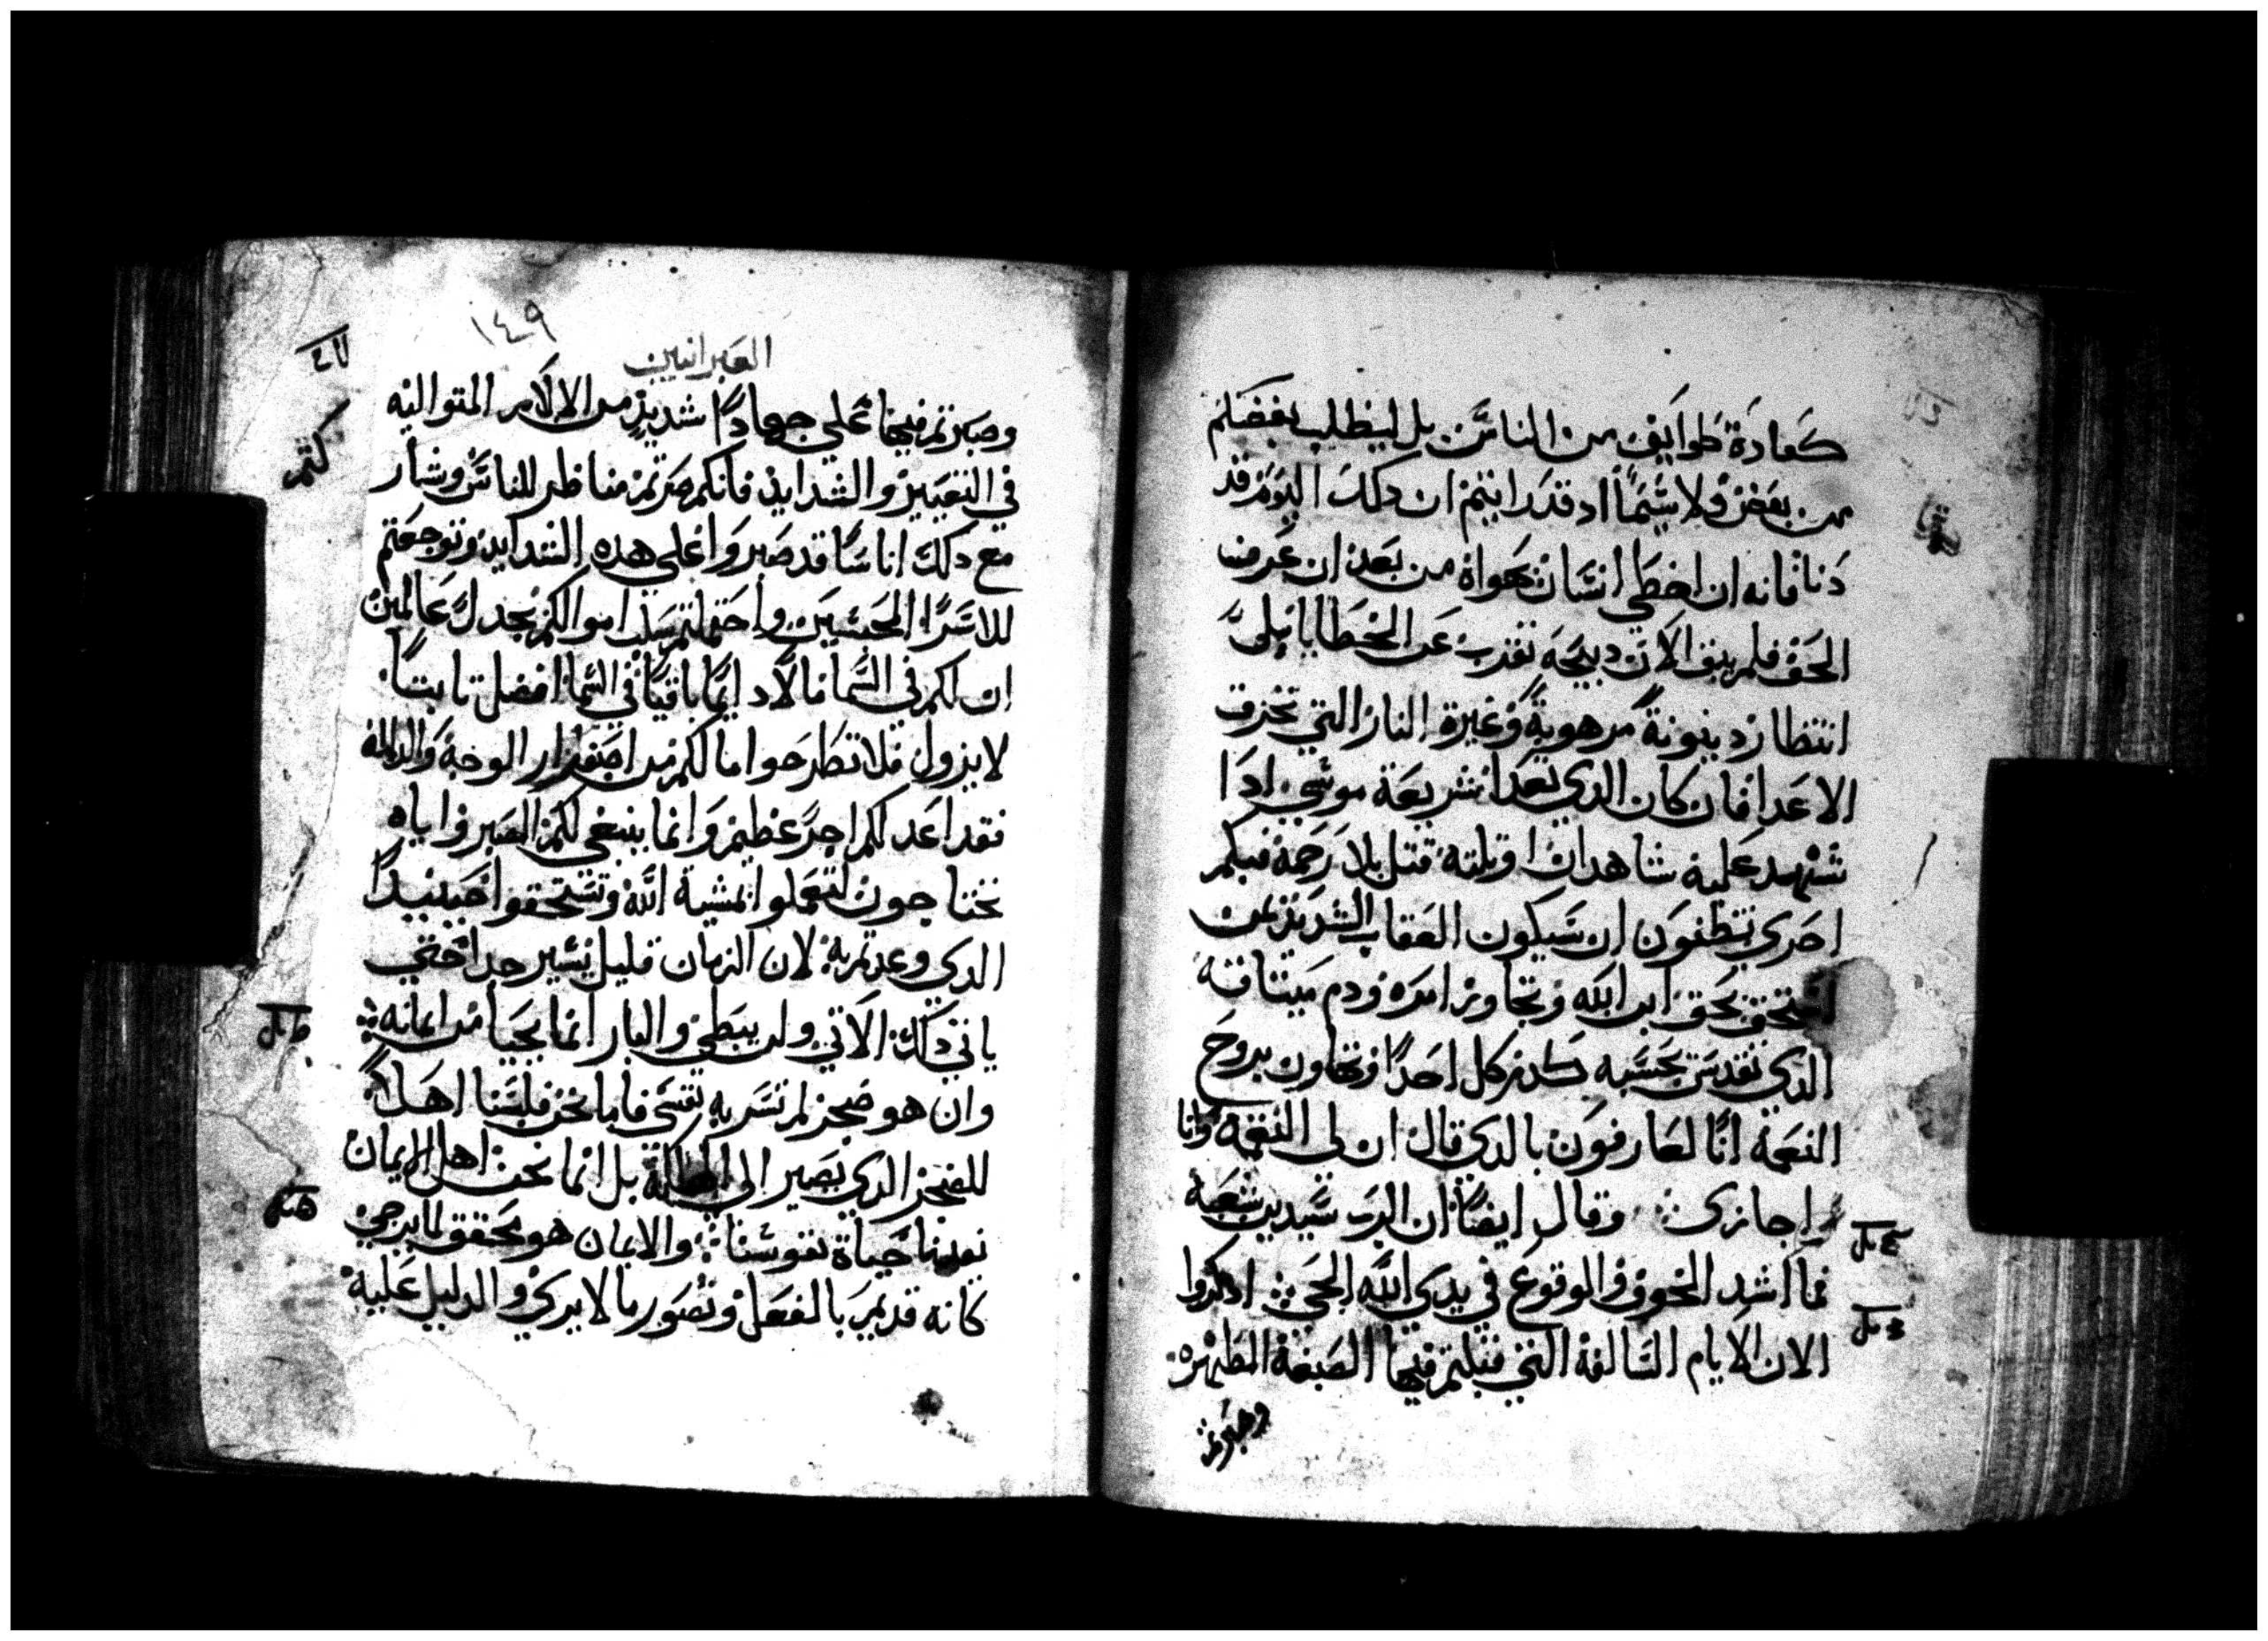 كعادة طوايف من الناس بل ليطلب بعضكم
من بعض ولا سيما اد قد رايتم ان دلك اليوم قد
دنا فانه ان اخطي انسان بهواه من بعد ان عرف
الحق فلم يبق الان دبيحة تقرب عن الخطايا بلي
انتظار دينونة مرهوبة وغيرة النار التي تحرق
الاعدا فان كان الدي تعدا شريعة موسي ادا
شهد عليه شاهدان او ثلثه قتل بلا رحمة فبكم
احري تظنون ان سيكون العقاب الشديد من
استخف بحق ابن الله وتجاوز امره ودم ميثاقه
الدي تقدس بحسبه كدم كل احدا وتهاون بروح
النعمة انا لعارفون بالدي قال ان لي النقمة وانا
اجازي وقال ايضا ان الرب سيدين شعبه
فما اشد الخوف والوقوع في يدي الله الحي ادكروا
الان الايام السالفة التي قبلتم فيها الصبغة المطهره
وصبرتم
١٤٩
العبرانيين
وصبرتم فيها علي جهادا شديد من الالام المتواليه
في التعيير والشدايد فانكم صرتم مناظر للناس وشارـ
مع دلك اناسا قد صبروا علي هده الشدايد وتوجعتم
للاسرا المحبسين واحتملتم سلب اموالكم بجدل عالمين
ان لكم في السما مالا دايما باقيا في السما افضل تابتا
لا يزول فلا تطرحوا ما لكم من اسفرار الوجة والدالة
فقد اعد لكم اجر عظيم وانما ينبغي لكم الصبر واياه
تحتاجون لتعملوا بمشية الله وتستحقوا حينيدا
الدي وعدتم به لان الزمان قليل يسير جدا حتي
ياتي دلك الاتي ولن يبطي والبار انما يحيا من ايمانه
وان هو ضجر لم تسر به نفسي فاما نحن فلسنا اهلا
للضجر الدي يصير الي الهلكة بل انما نحن اهل الايمان
نفيدنا حياة نفوسنا والايمان هو تحقق لما يرجي
كانه قديم بالفعل وتصور ما لا يري والدليل علية